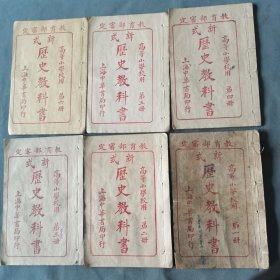 教育部審定
高等小學校用 第六冊
新式
歷史教科書
上海中華書局印行
教育部審定
高等小學校用 第五冊
新式
歷史教科書
上海中華書局印行
教育部審定
高等小學校用 第四冊
新式
歷史教科書
上海中華書局印行
教育部審定
高等小學校用 第三冊
新式
歷史教科書
上海中華書局印行
教育部審定
高等小學校用 第二冊
新式
歷史教科書
上海中華書局印行
教育部審定
高等小學校用
新式
歷史教科書
上海中華書局印行